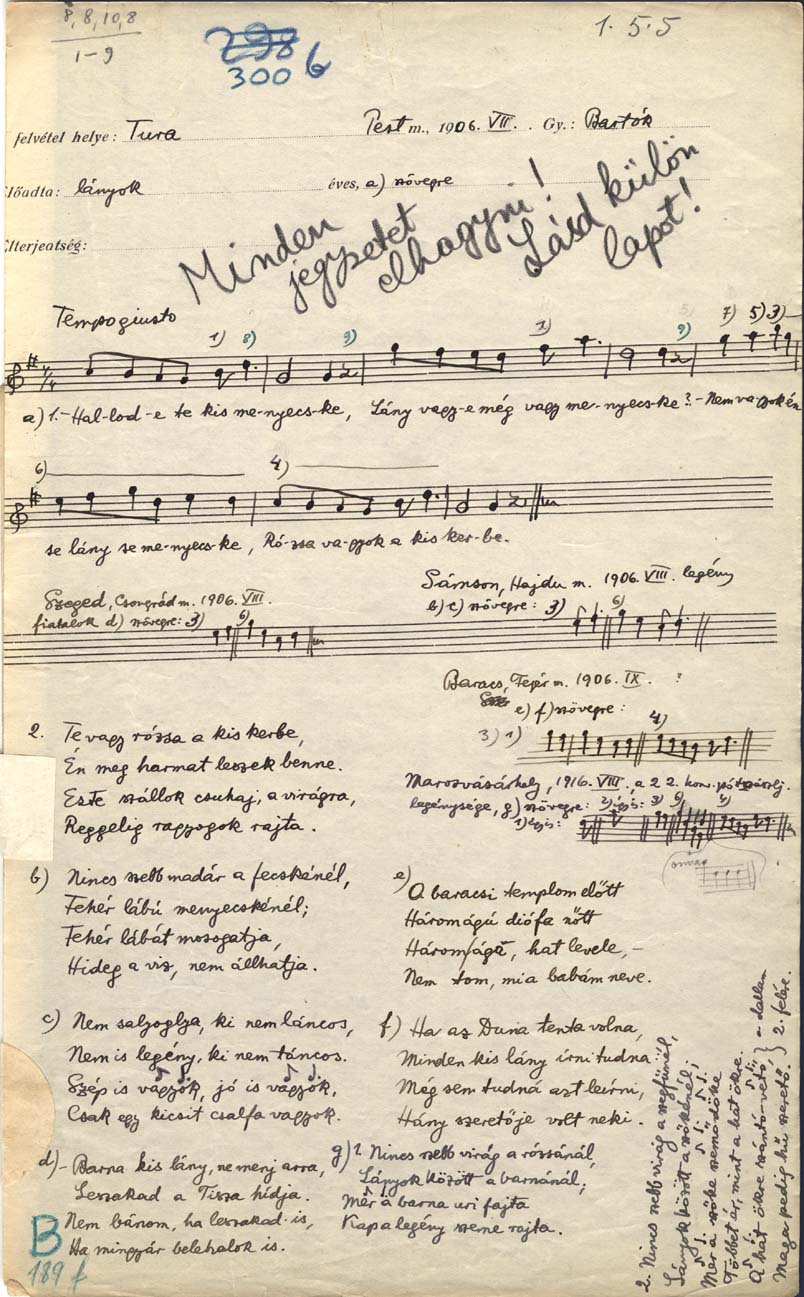 8, 8, 10, 8
1-9
298
300 b
1. 5. 5
felvétel helye: Tura
Pest m., 1906. VII. Gy.: Bartók
Előadta: lányok éves, a) szövegre
Elterjeatség:
Minden jegyzetet elhagyni! Lásd külön lapot!
Tempo giusto
1) 8) 9) 1) 9) 7) 5) 3)
a) 1.- Hal-lod-e te kis me-nyecs-ke, Lány vagy-e még vagy me-nyecs-ke? - Nem va-gyok én
6) 4)
se lány se me-nyecs-ke, Ró-zsa va-gyok a kis ker-be.
Szeged, Csongrád m. 1906. VIII.
fiatalok d) szövegre: 3) 6)
Sámson, Hajdu m. 1906. VIII. legény
b) c) szövegre: 3) 6)
Baracs, Fejér m. 1906. IX. ?
e) f) szövegre:
3) 1) 4)
Marosvásárhely, 1916. VIII., a 22. honv.
legénysége, g) szövegre:
2. Te vagy rózsa a kis kerbe,
Én meg harmat leszek benne.
Este szállok csuhaj, a virágra,
Reggelig ragyogok rajta.
b) Nincs szebb madár a fecskénél,
Fehér lábú menyecskénél;
Fehér lábát mosogatja,
Hideg a viz, nem állhatja.
c) Nem saljoglja, ki nem láncos,
Nem is legény, ki nem táncos.
Szép is vagyok, jó is vagyok,
Csak egy kicsit csalfa vagyok.
d) - Barna kis lány, ne menj arra,
Leszakad a Tisza hídja.
Nem bánom, ha leszakad is,
Ha mingyár belehalok is.
e) A baracsi templom előtt
Háromágú diófa nőtt
Háromágú, hat levele, -
Nem tom, mia babám neve.
f) Ha az Duna tenta volna,
Minden kis lány írni tudna:
Még sem tudná azt leírni,
Hány szeretője volt neki.
g) 1. Nincs szebb virág a rózsánál,
Lányok között a barnánál;
Mer a barna uri fajta
Kapa legény szeme rajta.
2. Nincs szebb virág a szegfünél,
Lányok között a szőkénél;
Mer a szőke szemödöke
Többet ér, mint a hat ökre.
A hat ökre szántó-vető,
Maga pedig hű szerető.
a dallam
2. felére.
B
189 f